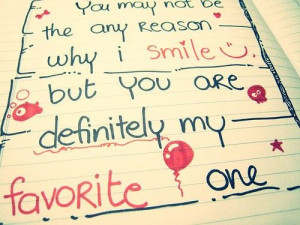 You may not be
the any reason
why i smile.
but you are
definitely my
favorite one